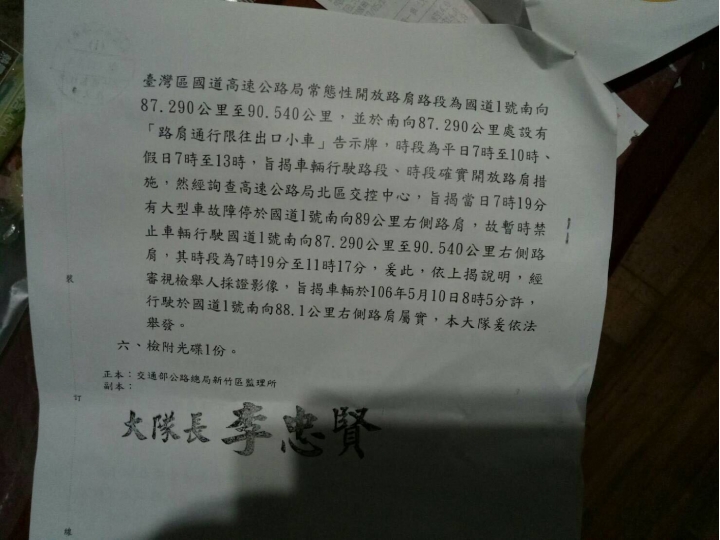 臺灣區國道高速公路局常態性開放路肩路段為國道1號南向
87.290公里至90.540公里，並於南向87.290公里處設有
「路肩通行限往出口小車」告示牌，時段為平日7時至10時、
假日7時至13時，旨揭車輛行駛路段、時段確實開放路肩措
施，然經詢查高速公路局北區交控中心，旨揭當日7時19分
有大型車故障停於國道1號南向89公里右側路肩，故暫時禁
止車輛行駛國道1號南向87.290公里至90.540公里右側路
肩，其時段為7時19分至11時17分，爰此，依上揭說明，經
審視檢舉人採證影像，旨揭車輛於106年5月10日8時5分許，
行駛於國道1號南向88.1公里右側路肩屬實，本大隊爰依法
舉發。
六、檢附光碟1份。
正本：交通部公路總局新竹區監理所
副本：
大隊長 李忠賢
裝
訂
線